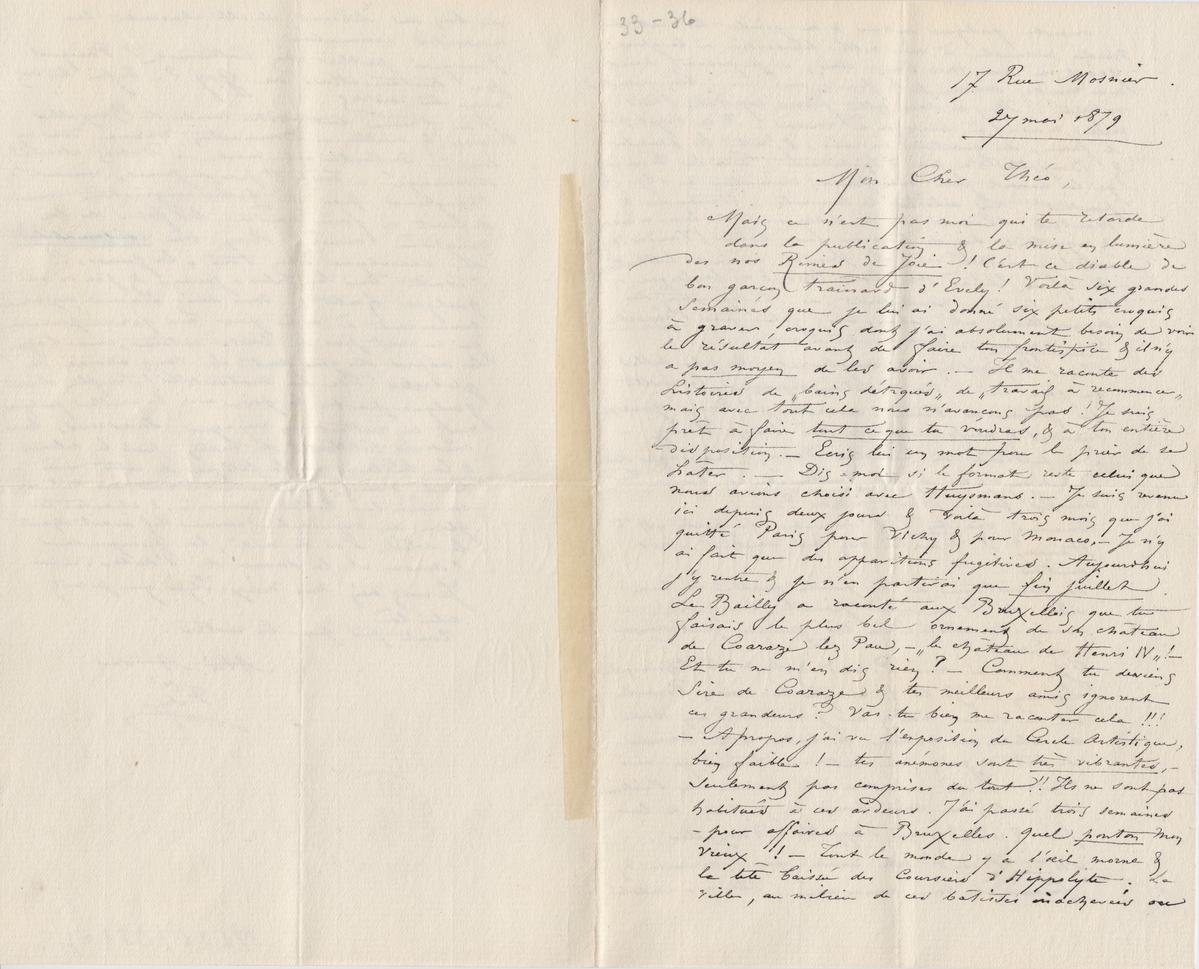 33-36
17 Rue Mosnier.
27 mai 1879
Mon Cher Théo,
Mais ce n'est pas moi qui te retarde
dans la publication & la mise en lumière
des nos Rimes de Joie ! C'est ce diable de
bon garçon trainard d'Evely ! Voilà six grandes
Semaines que je lui ai donné six petits croquis
à graver, croquis dont j'ai absolument besoin de voir
le résultat avant de faire ton frontispice & il n'y
a pas moyen de les avoir. — Il me raconte des
histoires de „bains détraqués„ de „travail à recommencer„
mais avec tout cela nous n'avançons pas ! Je suis
prêt à faire tout ce que tu voudras, & à ton entière
disposition. — Ecris lui un mot pour le prier de se
hâter. — Dis-moi si le format reste celui que
nous avions choisi avec Huysmans. — Je suis revenu
ici depuis deux jours & voilà trois mois que j'ai
quitté Paris pour Vichy & pour Monaco, — Je n'y
ai fait que des apparitions fugitives. Aujourd'hui
j'y rentre & je n'en partirai que fin juillet.
Le Bailly a raconté aux Bruxellois que tu
faisais le plus bel ornement de son château
de Coaraze lez Pau, — „le château de Henri IV„ ! —
Et tu ne m'en dis rien ? — Comment tu deviens
Sire de Coaraze & tes meilleurs amis ignorent
ces grandeurs ? Vas-tu bien me raconter cela !!!
— Apropos, j'ai vu l'exposition du Cercle Artistique,
bien faible ! — tes anémones sont très vibrantes, —
seulement pas comprises du tout !! Ils ne sont pas
habitués à ces ardeurs. J'ai passé trois semaines
— pour affaires à Bruxelles. Quel ponton mon
vieux !! — Tout le monde y a l'œil morne &
la tête baissée des Coursiers d'Hippolyte. La
ville, au milieu de ces bâtisses inachevées ou